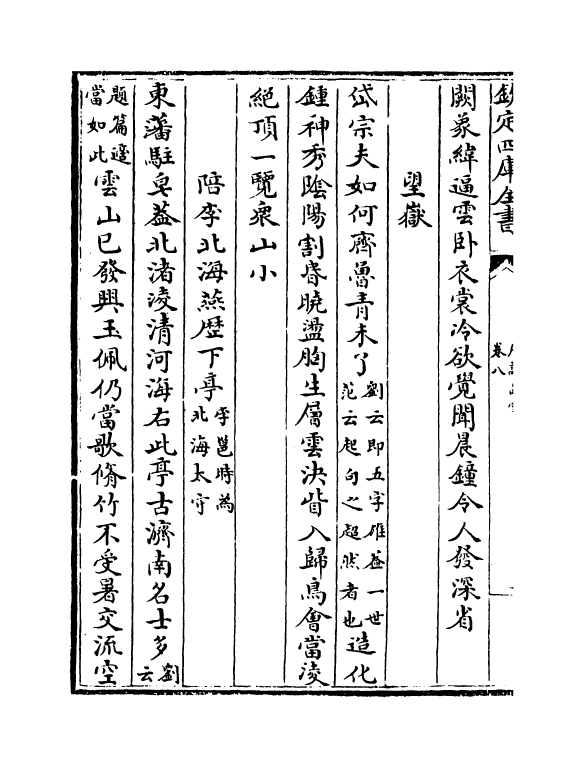 欽定四庫全書
卷八
闕象緯逼雲卧衣裳冷欲覺聞晨鐘令人發深省
望嶽
岱宗夫如何齊魯青未了劉云即五字雄葢一世范云起句之超然者也造化
鍾神秀陰陽割昏曉盪胸生層雲決眥入歸鳥會當淩
絶頂一覽衆山小
陪李北海燕歴下亭李邕時為北海太守
東藩駐皂葢北渚淩清河海右此亭古濟南名士多劉云
題篇邊當如此雲山已發興玉佩仍當歌脩竹不受暑交流空